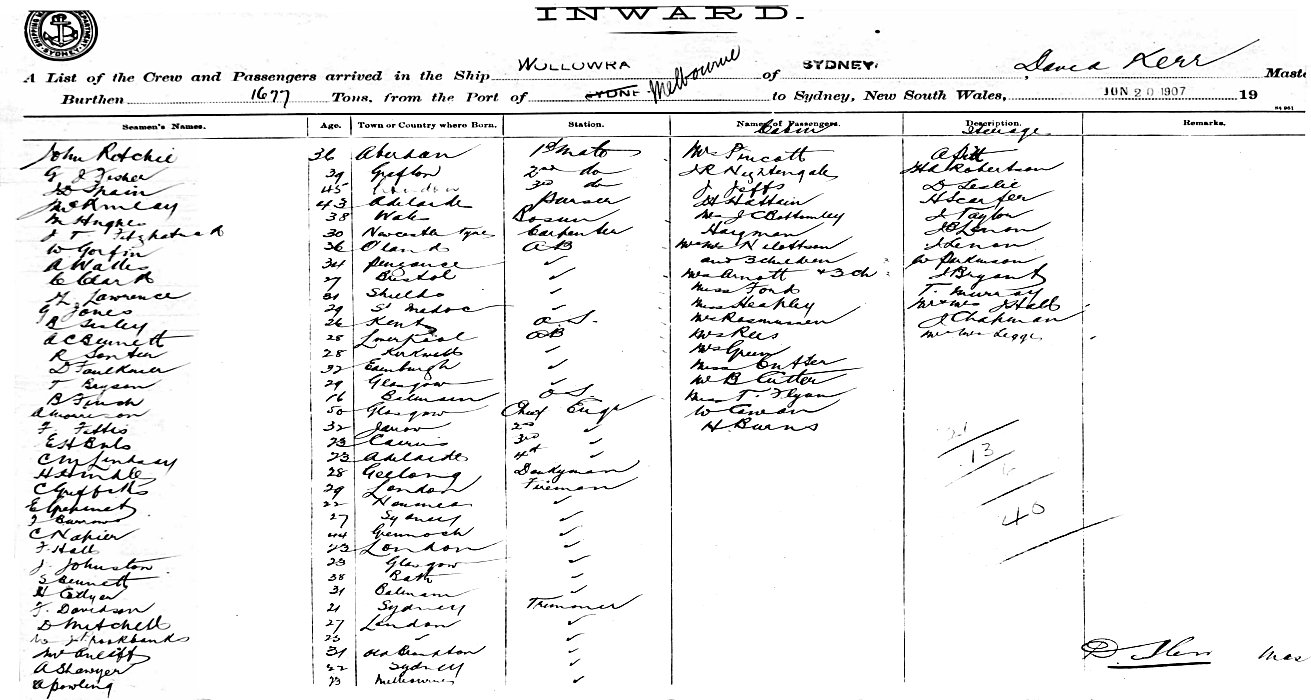 INWARD.
SHIPPING DEPARTMENT SYDNEY
A List of the Crew and Passengers arrived in the Ship WOLLOWRA of SYDNEY, David Kerr Maste
Burthen 1677 Tons, from the Port of SYDNE Melbourne to Sydney, New South Wales, JUN 20 1907 19
Seamen's Names. Age. Town or Country where Born. Station. Names of Passengers. Cabin Description. Steerage. Remarks.
John Ritchie 36 Aberdeen 1st Mate Mr Pincott A Pitt
G J Fisher 39 Grafton 2nd do J R Nightengale H A Robertson
J D Spain 45 London 3rd do J Jeffs D Leslie
43 Adelaide Purser H Hattain H Scarfer
M Hughes 38 Wales Bosun Mrs J C Bottomley J Taylor
J T Fitzpatrick 30 Newcastle Tyne Carpenter Hargman J B Lenon
W Gorfin 36 Oland AB Mr Mrs J Lenon
A Wallis 34 Penzance and 3 children W Parkinson
C Clark 27 Bristol Mrs Arnott + 3 ch J Bryant
H Lawrence 31 Shields Miss Ford T. Murray
G Jones 29 St Madoc Miss Heapley Mr + Mrs Hall
B Sesley 26 Kent O.S. Mr Rasmussen J Chapman
A C Bennett 28 Liverpool AB Mrs Rees Mr Mrs Legge
R Senter 28 Kirkwall Mrs Green
D Faulkner 32 Edinburgh Miss Cutter
T Bryson 29 Glasgow Mr B Cutter
B Finch 16 Balmain O.S. Miss T. Flynn
A Morrison 50 Glasgow Chief Engr W Cowan
F. Fettis 32 Jarrow 2nd H Burns
23 Cairns 3rd 21
C M Lindsay 23 Adelaide 4th 13
H Hinkle 28 Geelong Donkeyman 6
C Griffiths 29 London Fireman
22 Noumea 40
J Barrow 27 Sydney
C Napier 44 Greenock
F. Hall 23 London
J. Johnston 23 Glasgow
S Bennett 38 Bath
31 Balmain
J. Davidson 21 Sydney Trimmer
D Mitchell 27 London
23
31 D. Kerr Mas
A Shawyer 22 Sydney
A Powling 23 Melbourne